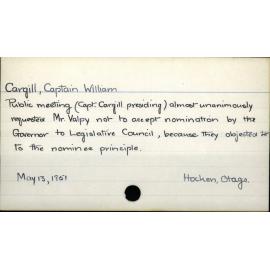 Cargill, Captain William
Public meeting (Capt. Cargill presiding) almost unanimously
requested Mr. Valpy not to accept nomination by the
Governor to Legislative Council, because they objected
to the nominee principle.
May 13, 1851 Hocken, Otago.